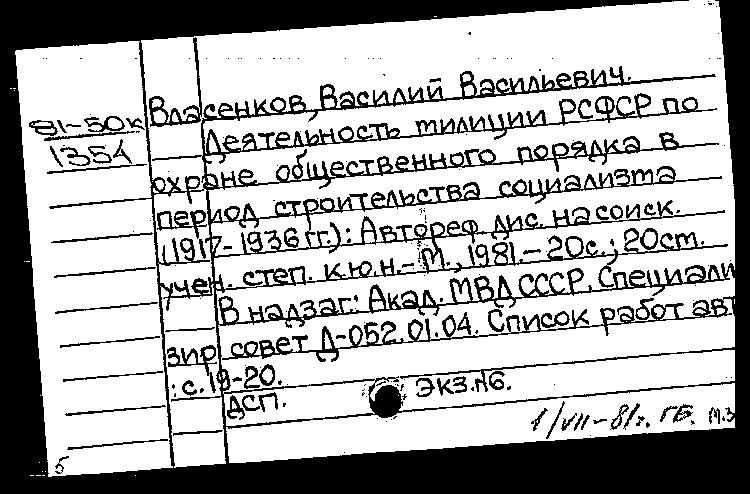 81-50к
1354
Власенков, Василий Васильевич.
Деятельность милиции РСФСР по
охране общественного порядка в
период строительства социализма
(1917-1936 гг.): Автореф. дис. на соиск.
учен. степ. к.ю.н.- М., 1981.- 20с.; 20см.
В надзаг.: Акад. МВД СССР. Специали
зир. совет Д-052.01.04. Список работ авт
: с. 19-20.
ДСП. ЭКЗ.№6.
1/VII-81г. ГБ. М.З
5